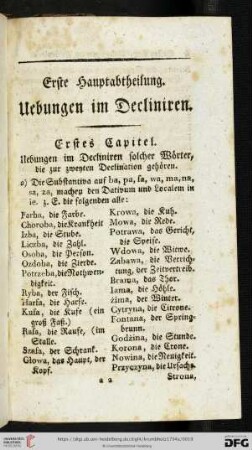 Erste Hauptabtheilung.
Uebungen im Decliniren.
Erstes Capitel.
Uebungen im Decliniren solcher Wörter,
die zur zweyten Declination gehören.
a) Die Substantiva auf ba, pa, fa, wa, ma, na,
sa, za, machen den Dativum und Localem in
ie. z. E. die folgenden alle:
Farba, die Farbe.
Choroba, die Krankheit
Izba, die Stube.
Liczba, die Zahl.
Osoba, die Person.
Ozdoba, die Zierde.
Potrzeba, die Nothwen-
digkeit.
Ryba, der Fisch.
Harfa, die Harfe.
Kufa, die Kufe (ein
groß Faß.)
Rafa, die Raufe, (im
Stalle.
Szafa, der Schrank.
Głowa, das Haupt, der
Kopf.
Krowa, die Kuh.
Mowa, die Rede.
Potrawa, das Gericht,
die Speise.
Wdowa, die Wiewe.
Zabawa, die Verrich-
tung, der Zeitvertreib.
Brama, das Thor.
Jama, die Höhle.
zima, der Winter.
Cytryna, die Citrone.
Fontana, der Spring-
brunn.
Godzina, die Stunde.
Korona, die Crone.
Nowina, die Neuigkeit.
Przyczyna, die Ursach.
a 2
Strona,